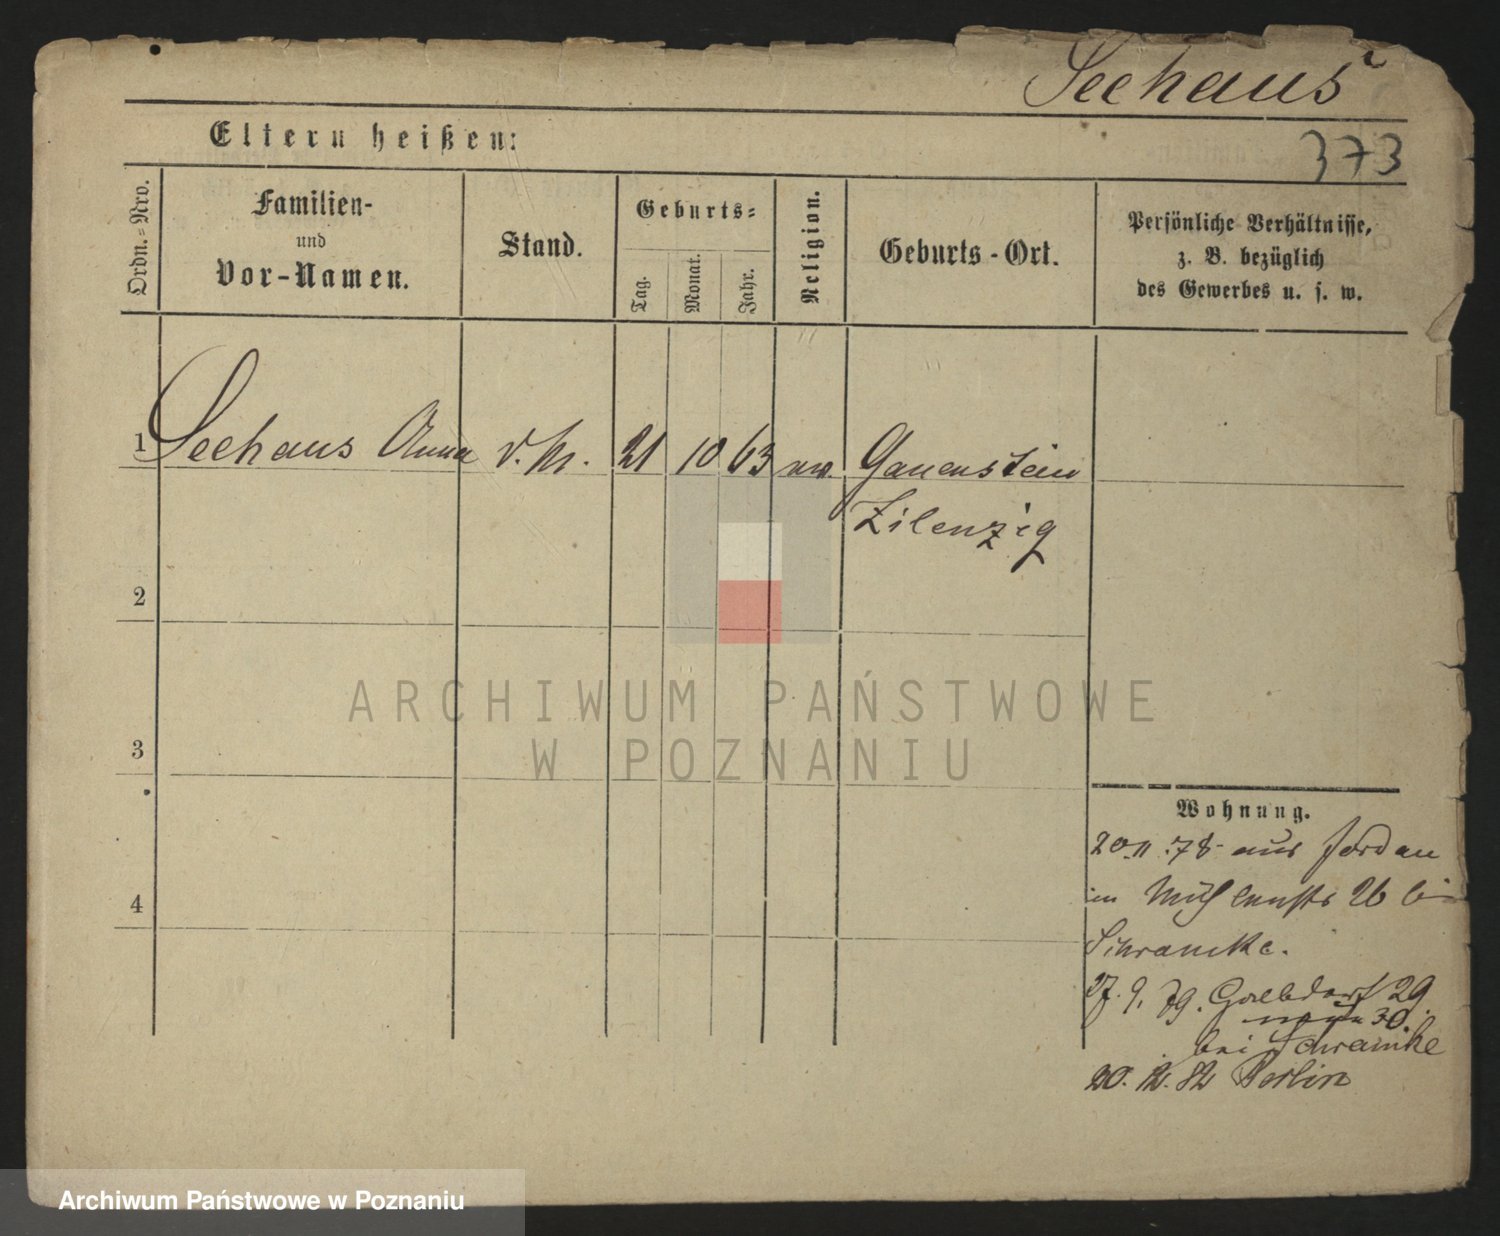 Seehaus
373
Eltern heißen:
Ordn.-Nro.
Familien-
und
Vor-Namen.
Stand.
Geburts-
Tag.
Monat.
Jahr.
Religion.
Geburts-Ort.
Persönliche Verhältnisse,
z. B. bezüglich
des Gewerbes u. s. w.
1 Seehaus Anna 21 10 63 Gauenstein
Zilenzig
2
3
4
ARCHIWUM PAŃSTWOWE
W POZNANIU
Wohnung.
20.11.78 aus Jordan
in Mühlenstr 26 bei
Schramke.
27.9.79. 29
30.
bei Schramke
20.12.82 Berlin
Archiwum Państwowe w Poznaniu